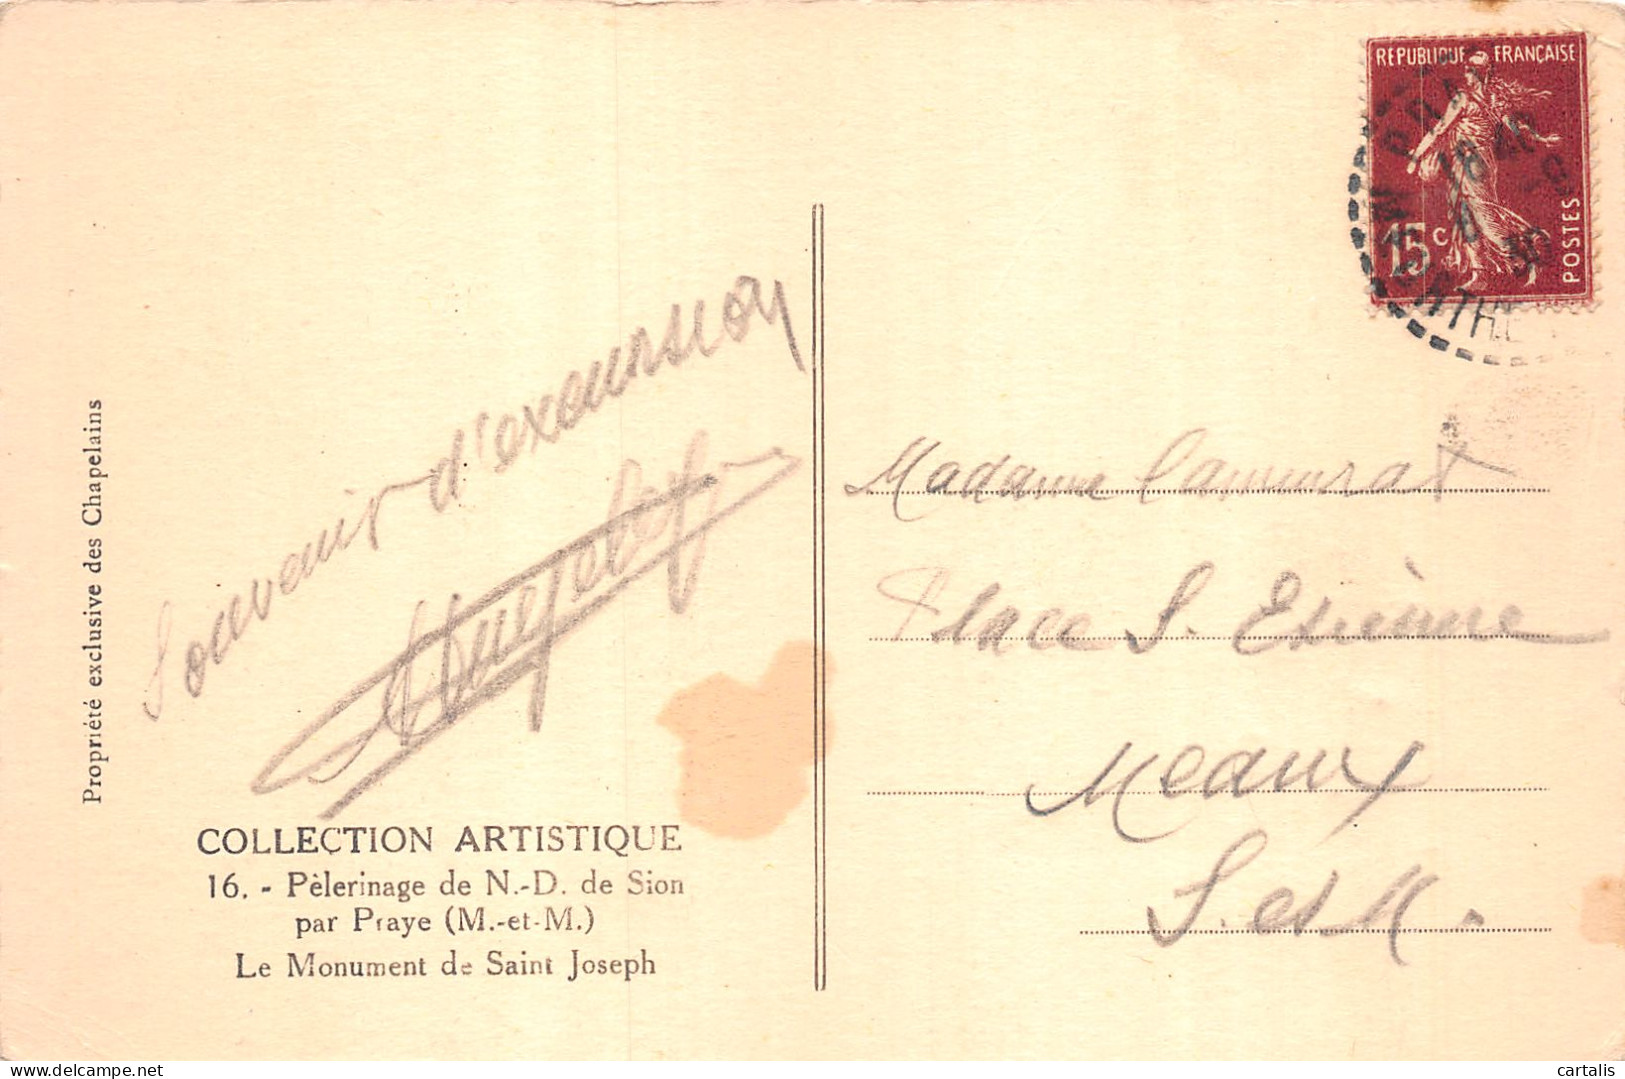 Propriété exclusive des Chapelains
Souvenir d'excursion
COLLECTION ARTISTIQUE
16. - Pèlerinage de N.-D. de Sion
par Praye (M.-et-M.)
Le Monument de Saint Joseph
REPUBLIQUE FRANÇAISE
15 c
POSTES
18 40
30
Madame
Place S. Etienne
Meaux
S. et M.
delcampe.net
cartalis